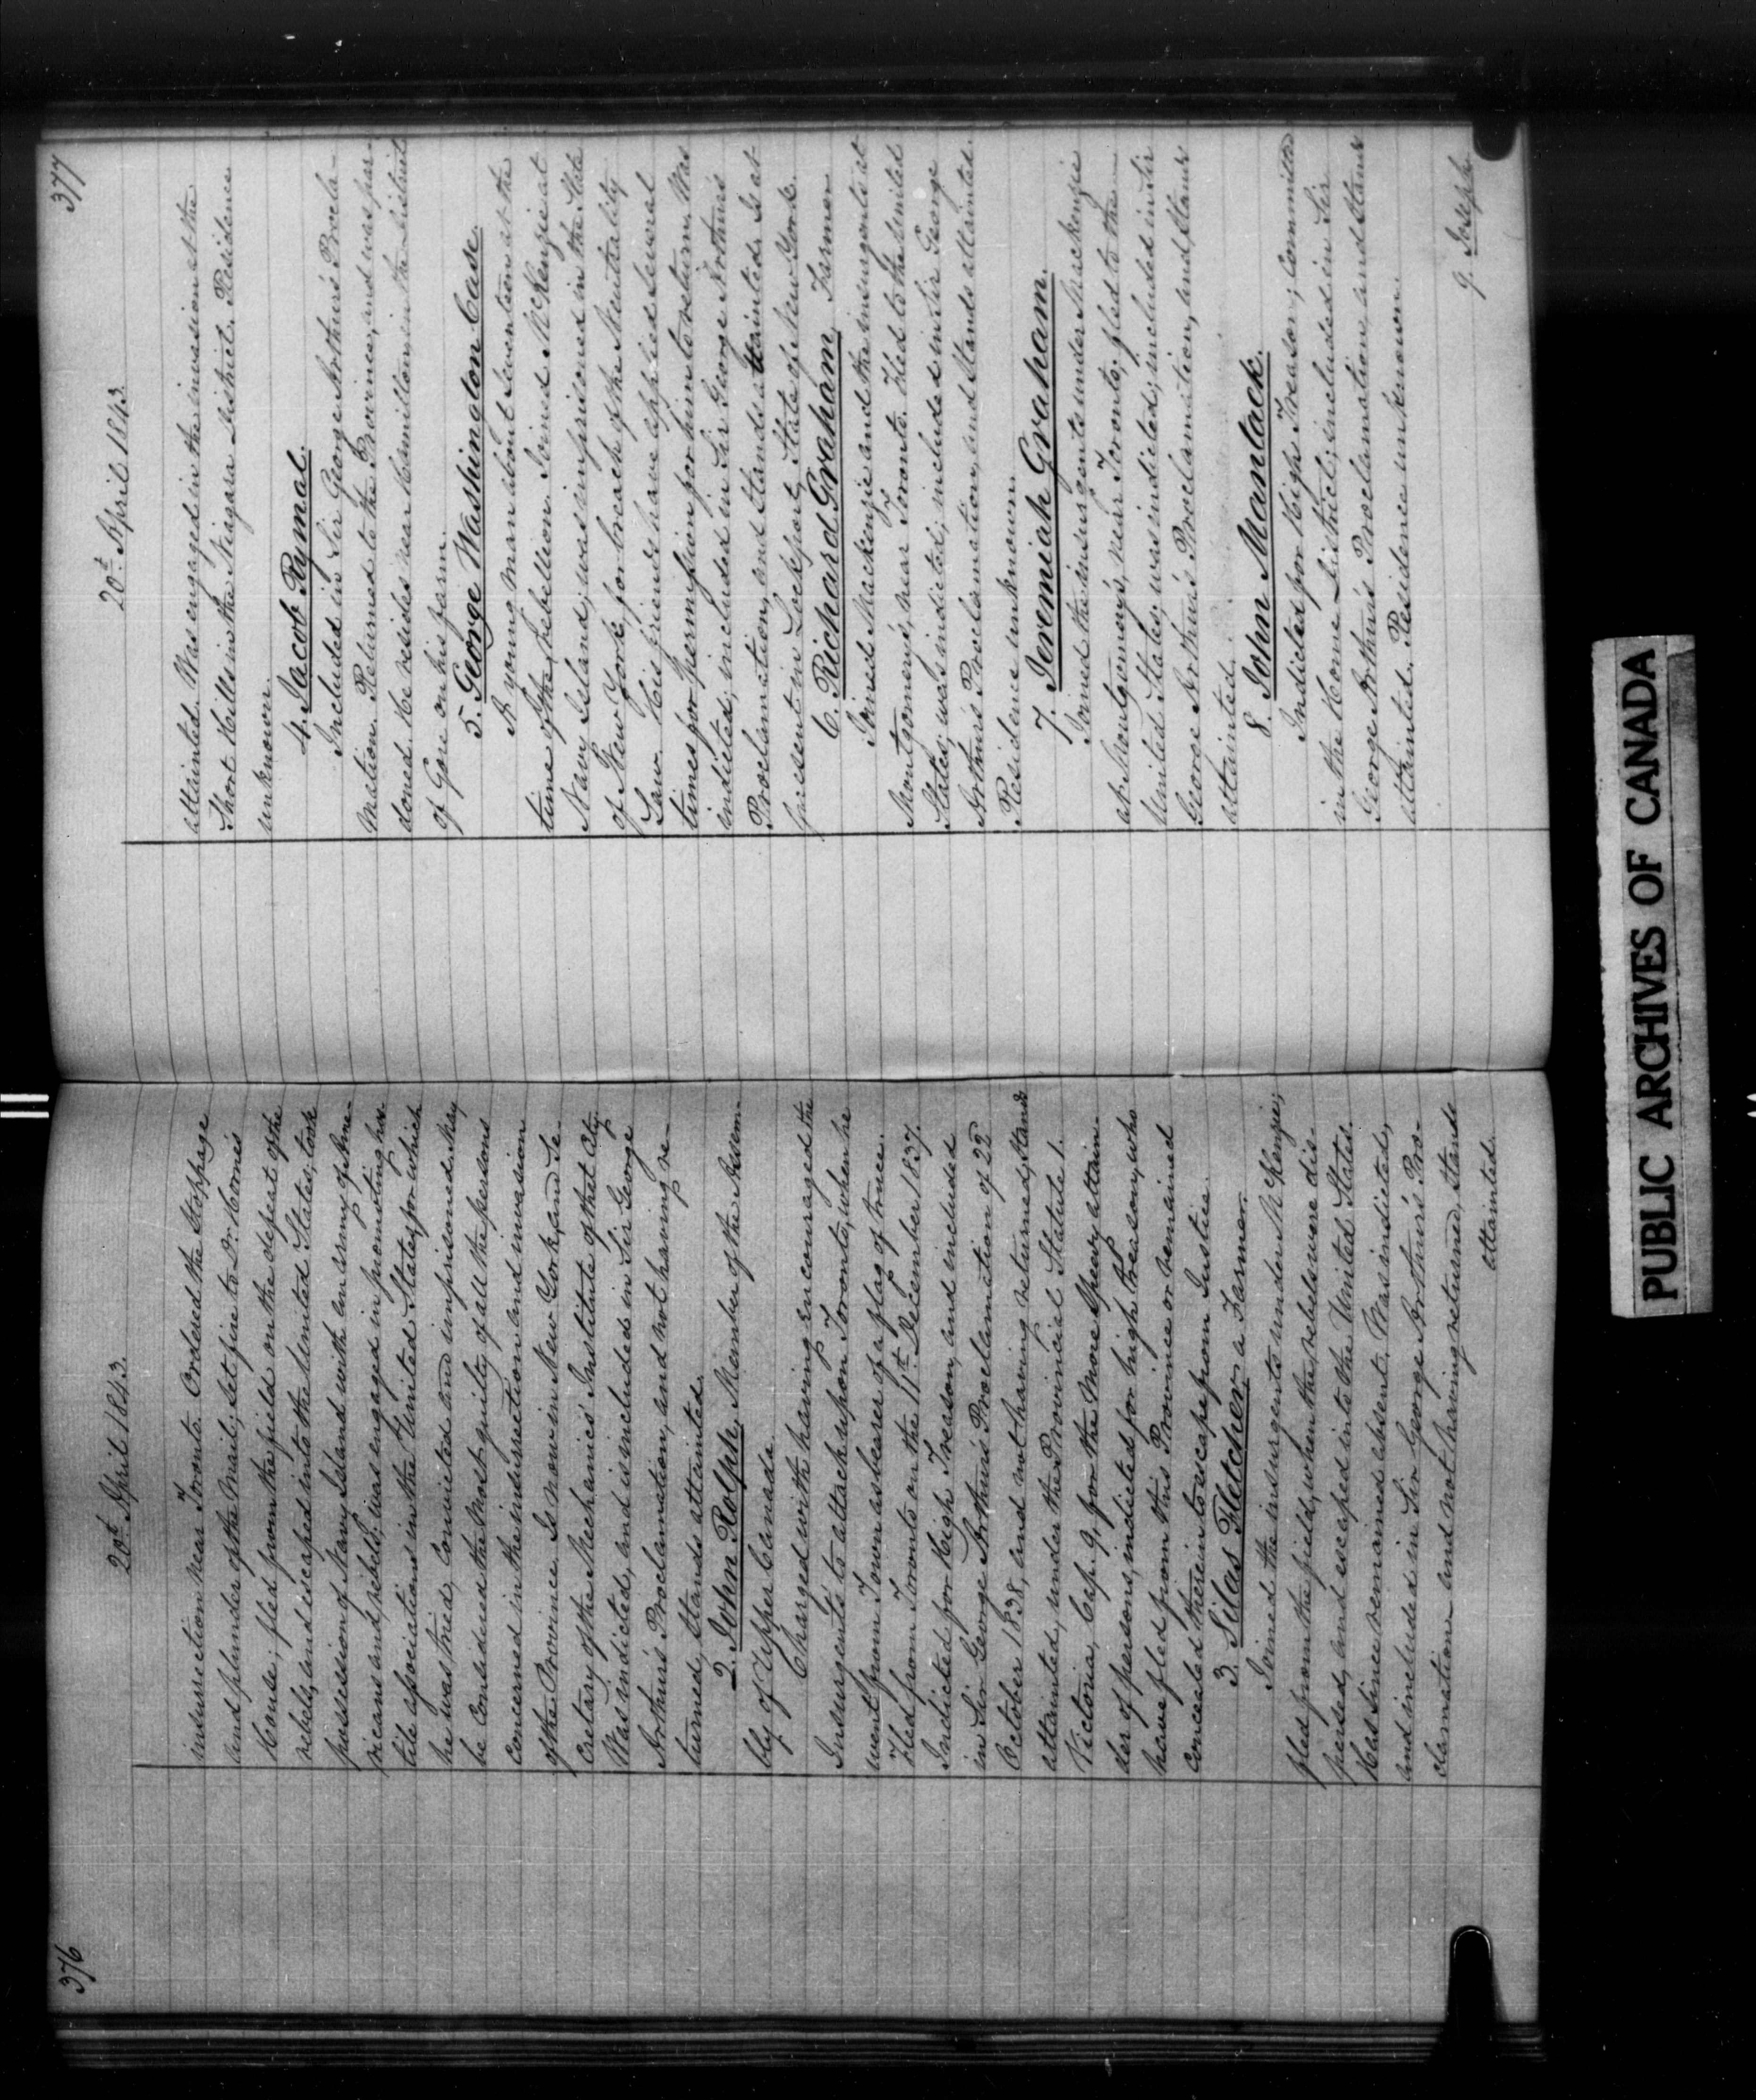 376
20th April 1843.
insurrection near Toronto. Ordered the stoppage
and plunder of the Mail; set fire to Dr. Horne's
House; fled from the field on the defeat of the
rebels, and escaped into the United States, took
possession of Navy Island with an army of Ame-
ricans and rebels; was engaged in promoting hos-
tile associations in the United States, for which
he was tried, convicted and imprisoned. May
be considered the most guilty of all the persons
concerned in the insurrection and invasion
of the Province. Is now in New York, and Se-
cretary of the Mechanics' Institute of that City.
Was indicted, and is included in Sir George
Arthur's Proclamation, and not having re-
turned, stands attainted.
2. John Rolph, Member of the Assem-
bly of Upper Canada.
Charged with having encouraged the
Insurgents to attack upon Toronto, when he
went from Town as bearer of a flag of truce.
Fled from Toronto on the 11th December 1837.
Indicted for High Treason, and included
in Sir George Arthur's Proclamation of 22d
October 1838, and not having returned, stands
attainted, under the Provincial Statute 1.
Victoria, Cap. 9, for the more speedy attain-
der of persons, indicted for high treason, who
have fled from this Province or remained
concealed therein to escape from Justice.
3. Silas Fletcher a Farmer.
Joined the insurgents under McKenzie;
fled from the field, when the rebels were dis-
persed, and escaped into the United States.
Has since remained absent. Was indicted,
and included in Sir George Arthur's Pro-
clamation and not having returned, stands
attainted.
377
20th April 1843.
attainted. Was engaged in the invasion at the
Short Hills in the Niagara District. Residence
unknown.
4. Jacob Rymal.
Included in Sir George Arthur's Procla-
mation. Returned to the Province, and was par-
doned. He resides near Hamilton, in the District
of Gore on his farm.
5. George Washington Case.
A young man about seventeen at the
time of the rebellion. Joined McKenzie at
Navy Island; was imprisoned in the State
of New York, for breach of the Neutrality
Law. His friends have applied several
times for permission for him to return. Was
indicted; included in Sir George Arthur's
Proclamation, and stands attainted. Is at
present in Lockport, State of New York.
6. Richard Graham, Farmer
Joined Mackenzie and the insurgents at
Montgomery's, near Toronto. Fled to the United
States; was indicted; included in Sir George
Arthur's Proclamation, and stands attainted.
Residence unknown.
7. Jeremiah Graham.
Joined the insurgents under Mackenzie
at Montgomery's, near Toronto; fled to the
United States; was indicted; included in Sir
George Arthur's Proclamation, and stands
attainted.
8. John Mantack.
Indicted for High Treason; committed
in the Home District; included in Sir
George Arthur's Proclamation and stands
attainted. Residence unknown.
9. Joseph
PUBLIC ARCHIVES OF CANADA